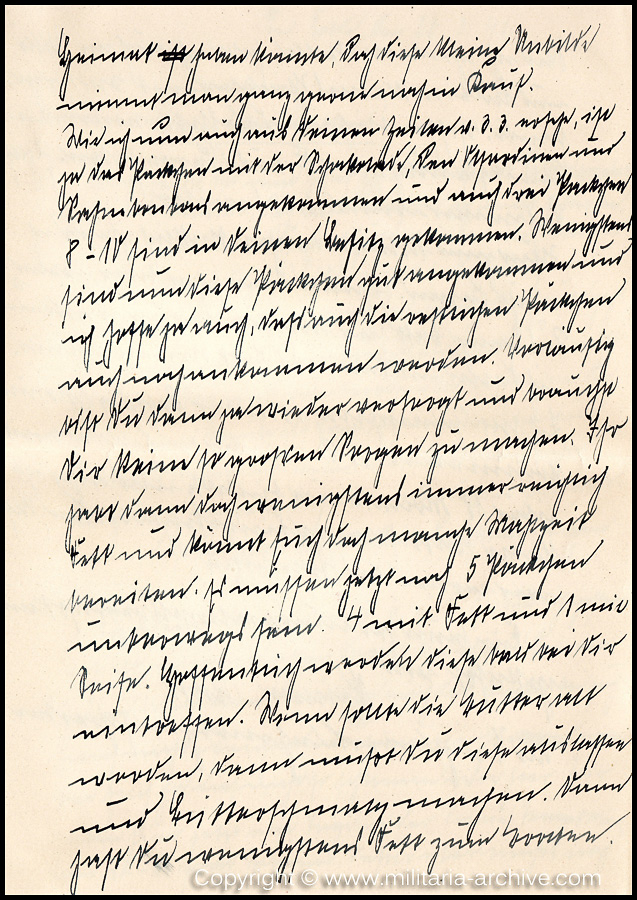 Heimat ist haben könnte, daß diese kleine Unbilde
nimmt man ganz gerne noch in Kauf.
Wie ich nun auch aus Deinen Zeilen v. 3. 3. ersehe, ist
ja das Päckchen mit der Schokolade, den Sardinen und
Rahmbonbons angekommen und auch drei Päckchen
8 - 10 sind in Deinen Besitz gekommen. Wenigstens
sind nun diese Päckchen gut angekommen und
ich hoffe ja auch, daß auch die restlichen Päckchen
auch noch ankommen werden. Vorläufig
bist Du dann ja wieder versorgt und brauchst
Dir keine so großen Sorgen zu machen. Ihr
habt dann doch wenigstens immer reichlich
Fett und könnt Euch doch manche Mahlzeit
bereiten. Es müssen jetzt noch 5 Päckchen
unterwegs sein. 4 mit Fett und 1 mit
Seife. Hoffentlich werden diese bald bei Dir
eintreffen. Wenn sollte die Butter alt
werden, dann mußt Du diese auslassen
und Butterschmalz machen. Dann
hast Du wenigstens Fett zum Braten.
Copyright © www.militaria-archive.com